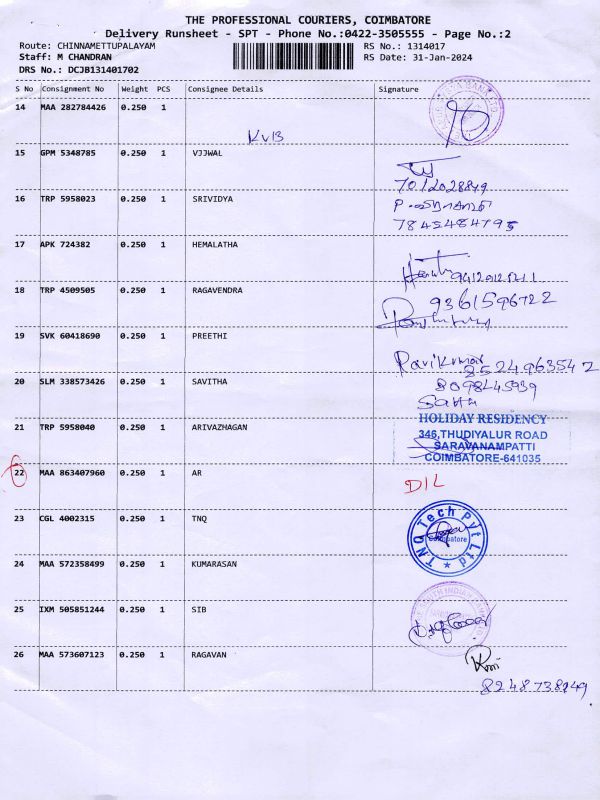 THE PROFESSIONAL COURIERS, COIMBATORE
Delivery Runsheet - SPT - Phone No.:0422-3505555 - Page No.:2
Route: CHINNAMETTUPALAYAM
Staff: M CHANDRAN
DRS No.: DCJB131401702
RS No.: 1314017
RS Date: 31-Jan-2024
S No Consignment No Weight PCS Consignee Details Signature
14 MAA 282784426 0.250 1
KVB
15 GPM 5348785 0.250 1 VJJWAL
7012028849
16 TRP 5958023 0.250 1 SRIVIDYA
7845484795
17 APK 724382 0.250 1 HEMALATHA
18 TRP 4509505 0.250 1 RAGAVENDRA
9361596722
19 SVK 60418690 0.250 1 PREETHI
Ravikumar
8524963542
20 SLM 338573426 0.250 1 SAVITHA
8098445939
21 TRP 5958040 0.250 1 ARIVAZHAGAN
HOLIDAY RESIDENCY
346,THUDIYALUR ROAD
SARAVANAMPATTI
COIMBATORE-641035
22 MAA 863407960 0.250 1 AR
DIL
23 CGL 4002315 0.250 1 TNQ
TNQ Tech Pvt Ltd
Coimbatore
24 MAA 572358499 0.250 1 KUMARASAN
25 IXM 505851244 0.250 1 SIB
SOUTH INDIAN BANK LTD
26 MAA 573607123 0.250 1 RAGAVAN